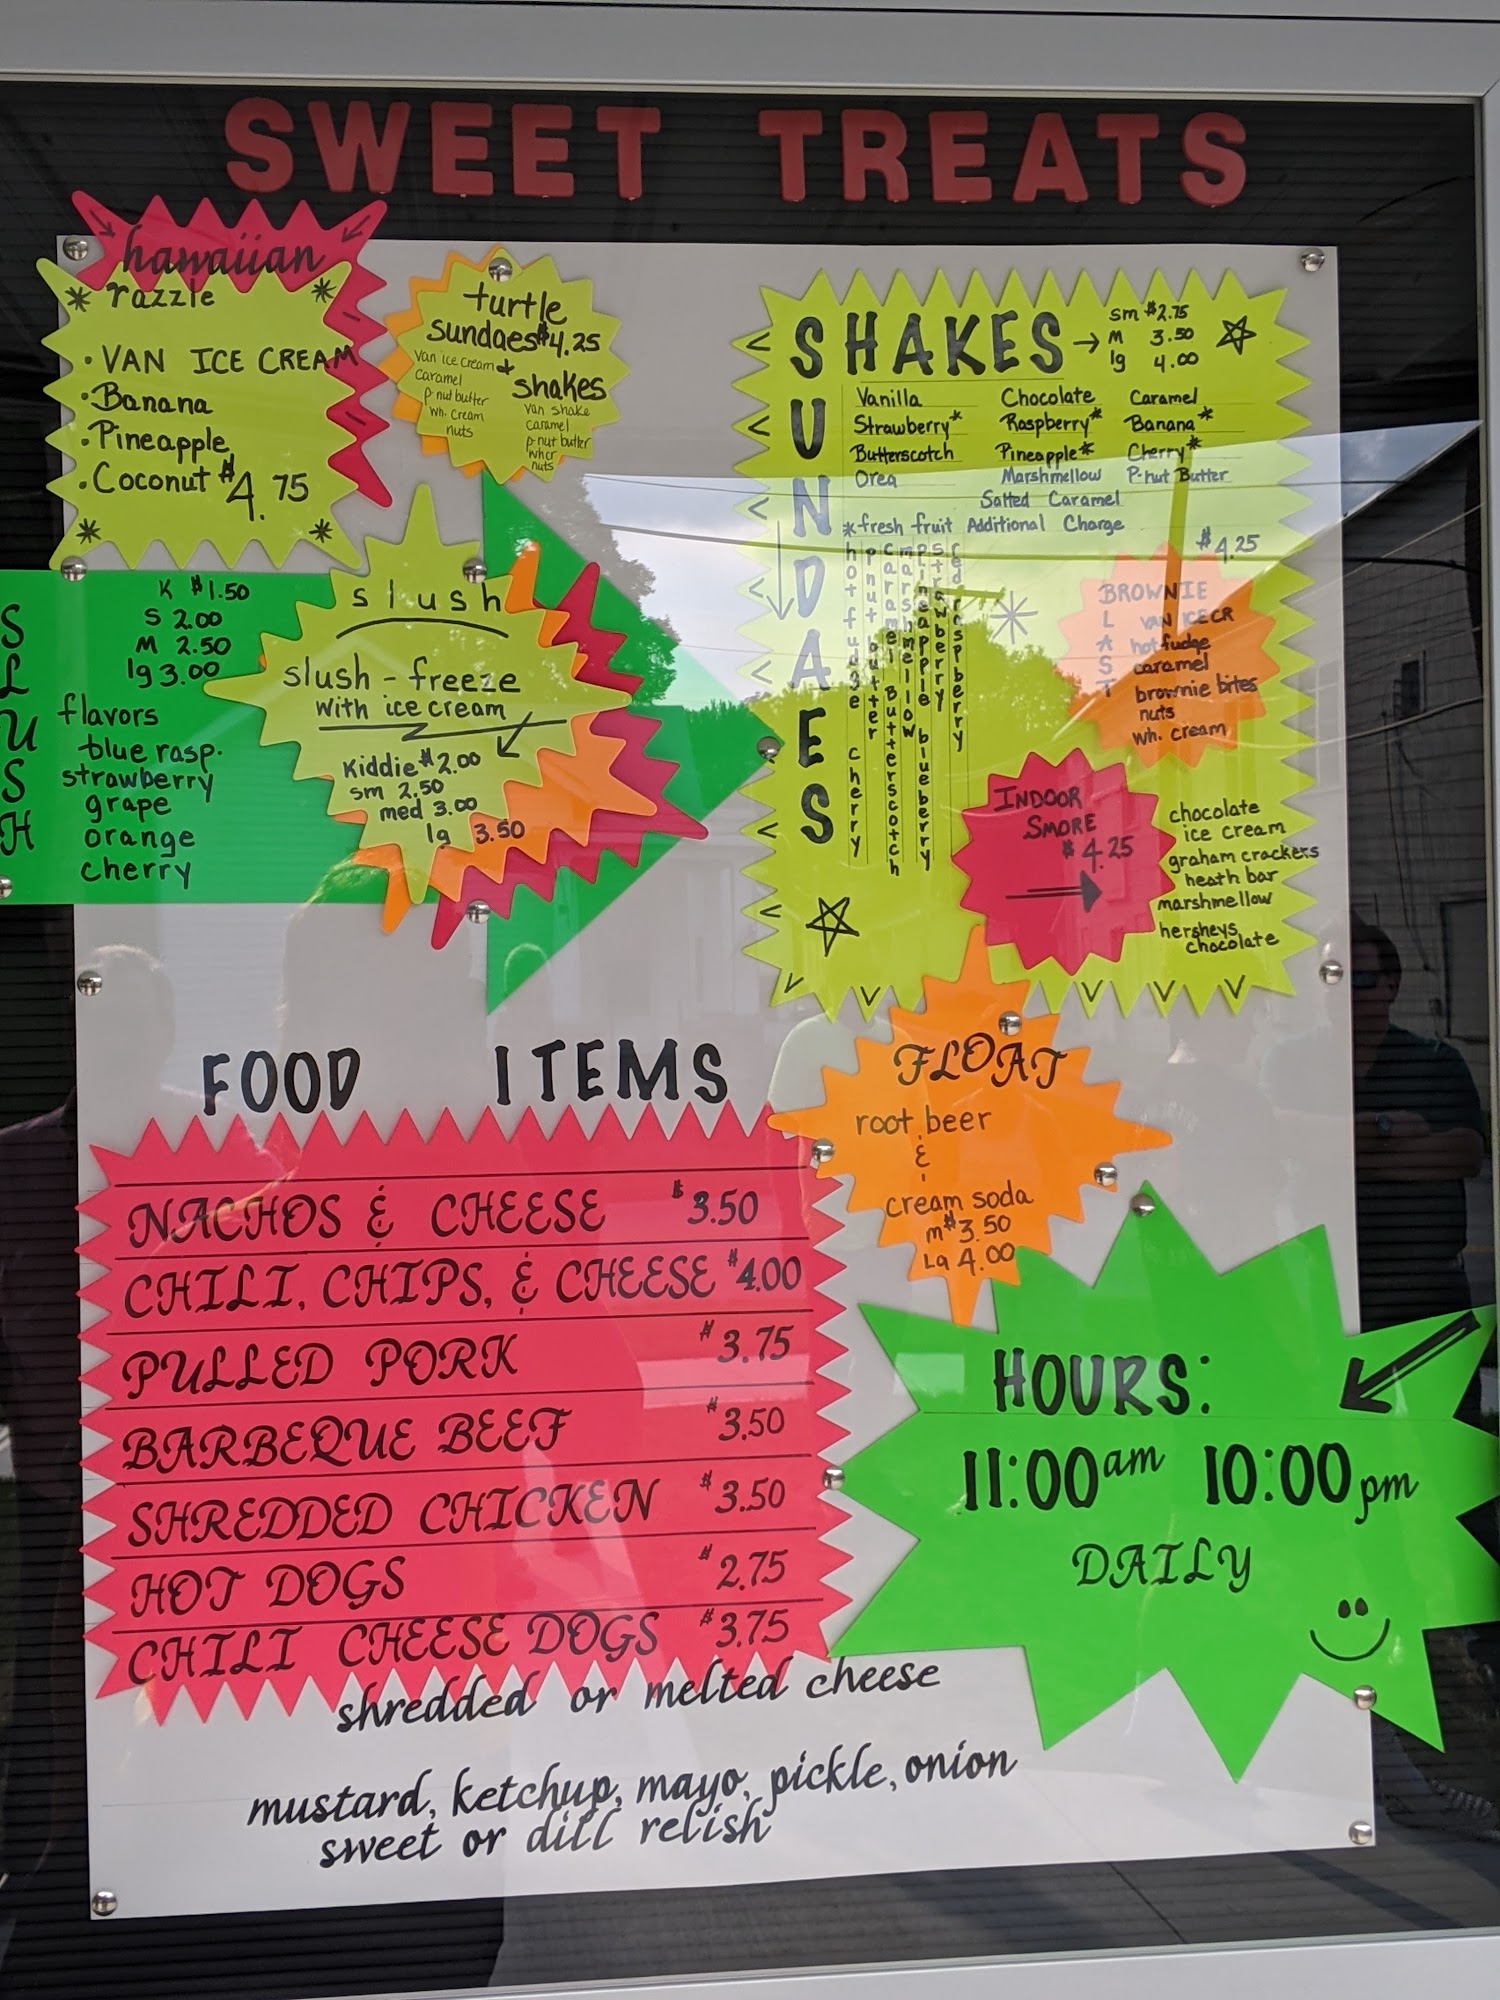 SWEET TREATS
hawaiian
razzle
• VAN ICE CREAM
• Banana
• Pineapple
• Coconut $4.75
turtle
sundaes $4.25
Van ice cream
caramel
p-nut butter
wh. cream
nuts
&
shakes
van shake
caramel
p-nut butter
wh cr
nuts
SHAKES → sm $2.75
m 3.50
lg 4.00
Vanilla Chocolate Caramel
Strawberry* Raspberry* Banana*
Butterscotch Pineapple* Cherry*
Oreo Marshmellow P-nut Butter
Salted Caramel
*fresh fruit Additional Charge
SUNDAES
hot fudge cherry
pnut butter
caramel Butterscotch
marshmellow
pineapple blueberry
strawberry
red raspberry
$4.25
BROWNIE
BLAST
VAN ICE CR
hot fudge
caramel
brownie bites
nuts
wh. cream
INDOOR
SMORE
$4.25
chocolate
ice cream
graham crackers
heath bar
marshmellow
hersheys
chocolate
SLUSH
K $1.50
S 2.00
M 2.50
lg 3.00
flavors
blue rasp.
strawberry
grape
orange
cherry
slush
slush - freeze
with ice cream
Kiddie $2.00
sm 2.50
med 3.00
lg 3.50
FLOAT
root beer
&
cream soda
m $3.50
La 4.00
FOOD ITEMS
NACHOS & CHEESE $3.50
CHILI, CHIPS, & CHEESE $4.00
PULLED PORK $3.75
BARBEQUE BEEF $3.50
SHREDDED CHICKEN $3.50
HOT DOGS $2.75
CHILI CHEESE DOGS $3.75
shredded or melted cheese
mustard, ketchup, mayo, pickle, onion
sweet or dill relish
HOURS:
11:00am 10:00pm
DAILY